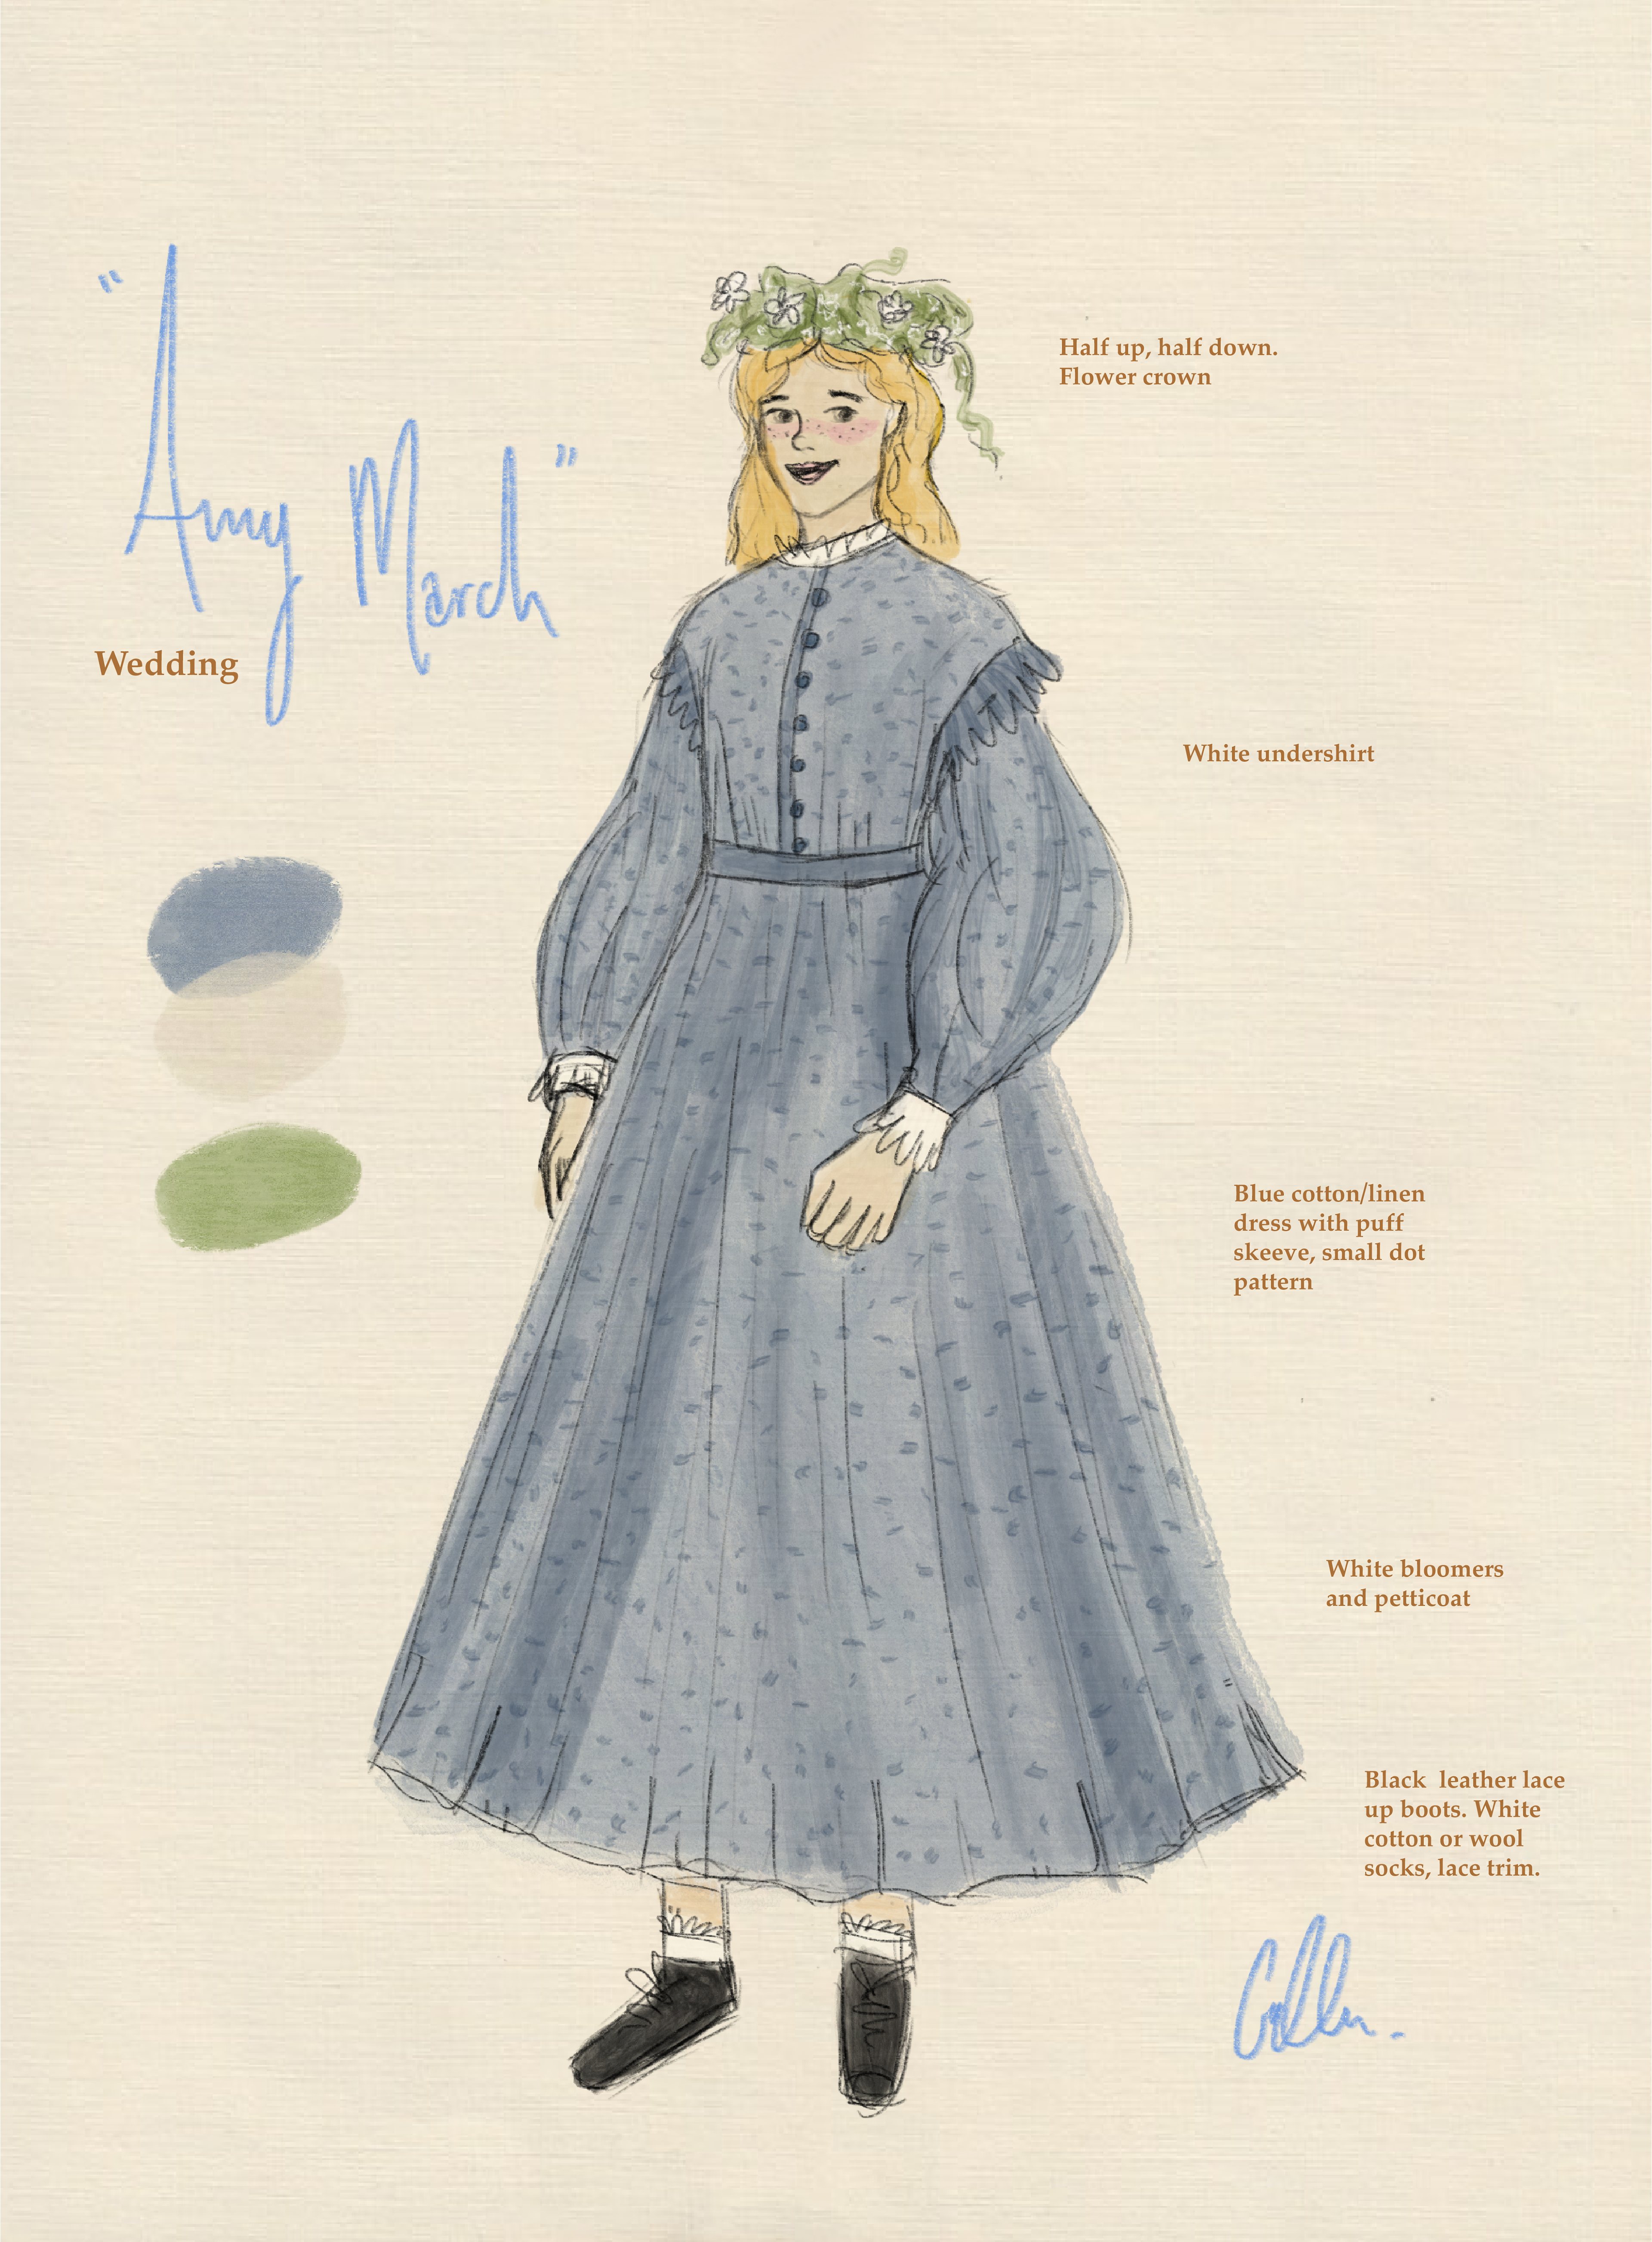 "Amy March"
Wedding
Half up, half down.
Flower crown
White undershirt
Blue cotton/linen
dress with puff
skeeve, small dot
pattern
White bloomers
and petticoat
Black  leather lace
up boots. White
cotton or wool
socks, lace trim.